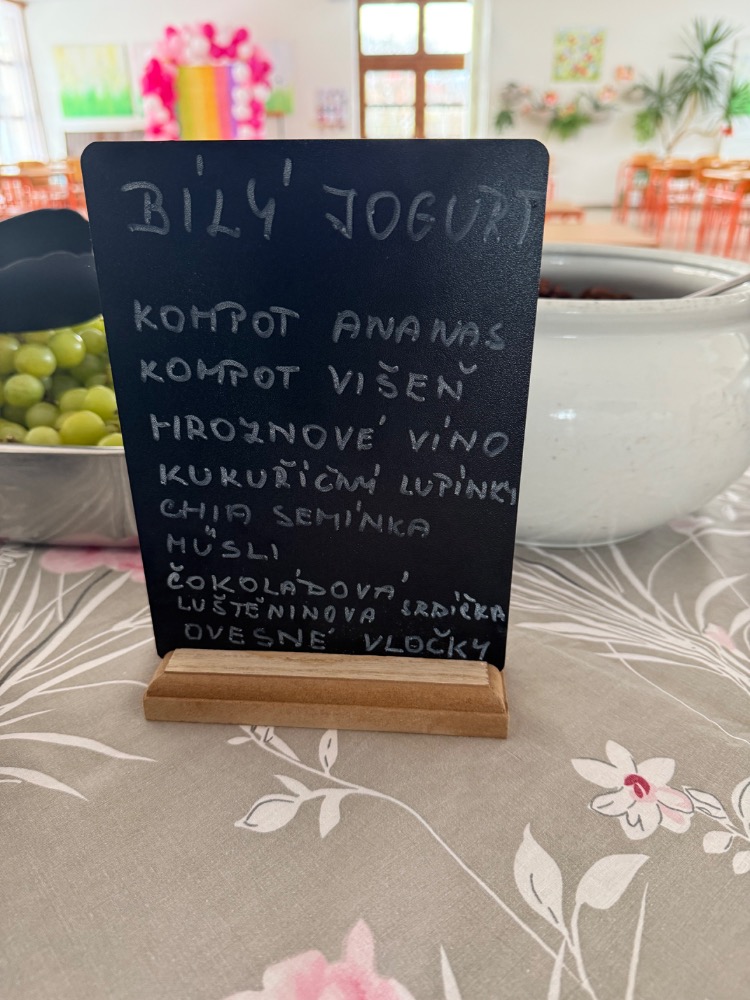 BÍLÝ JOGURT
KOMPOT ANANAS
KOMPOT VIŠEŇ
HROZNOVÉ VÍNO
KUKUŘIČNÍ LUPÍNKY
CHIA SEMÍNKA
MÜSLI
ČOKOLÁDOVÁ
LUŠTĚNINOVA SRDÍČKA
OVESNÉ VLOČKY